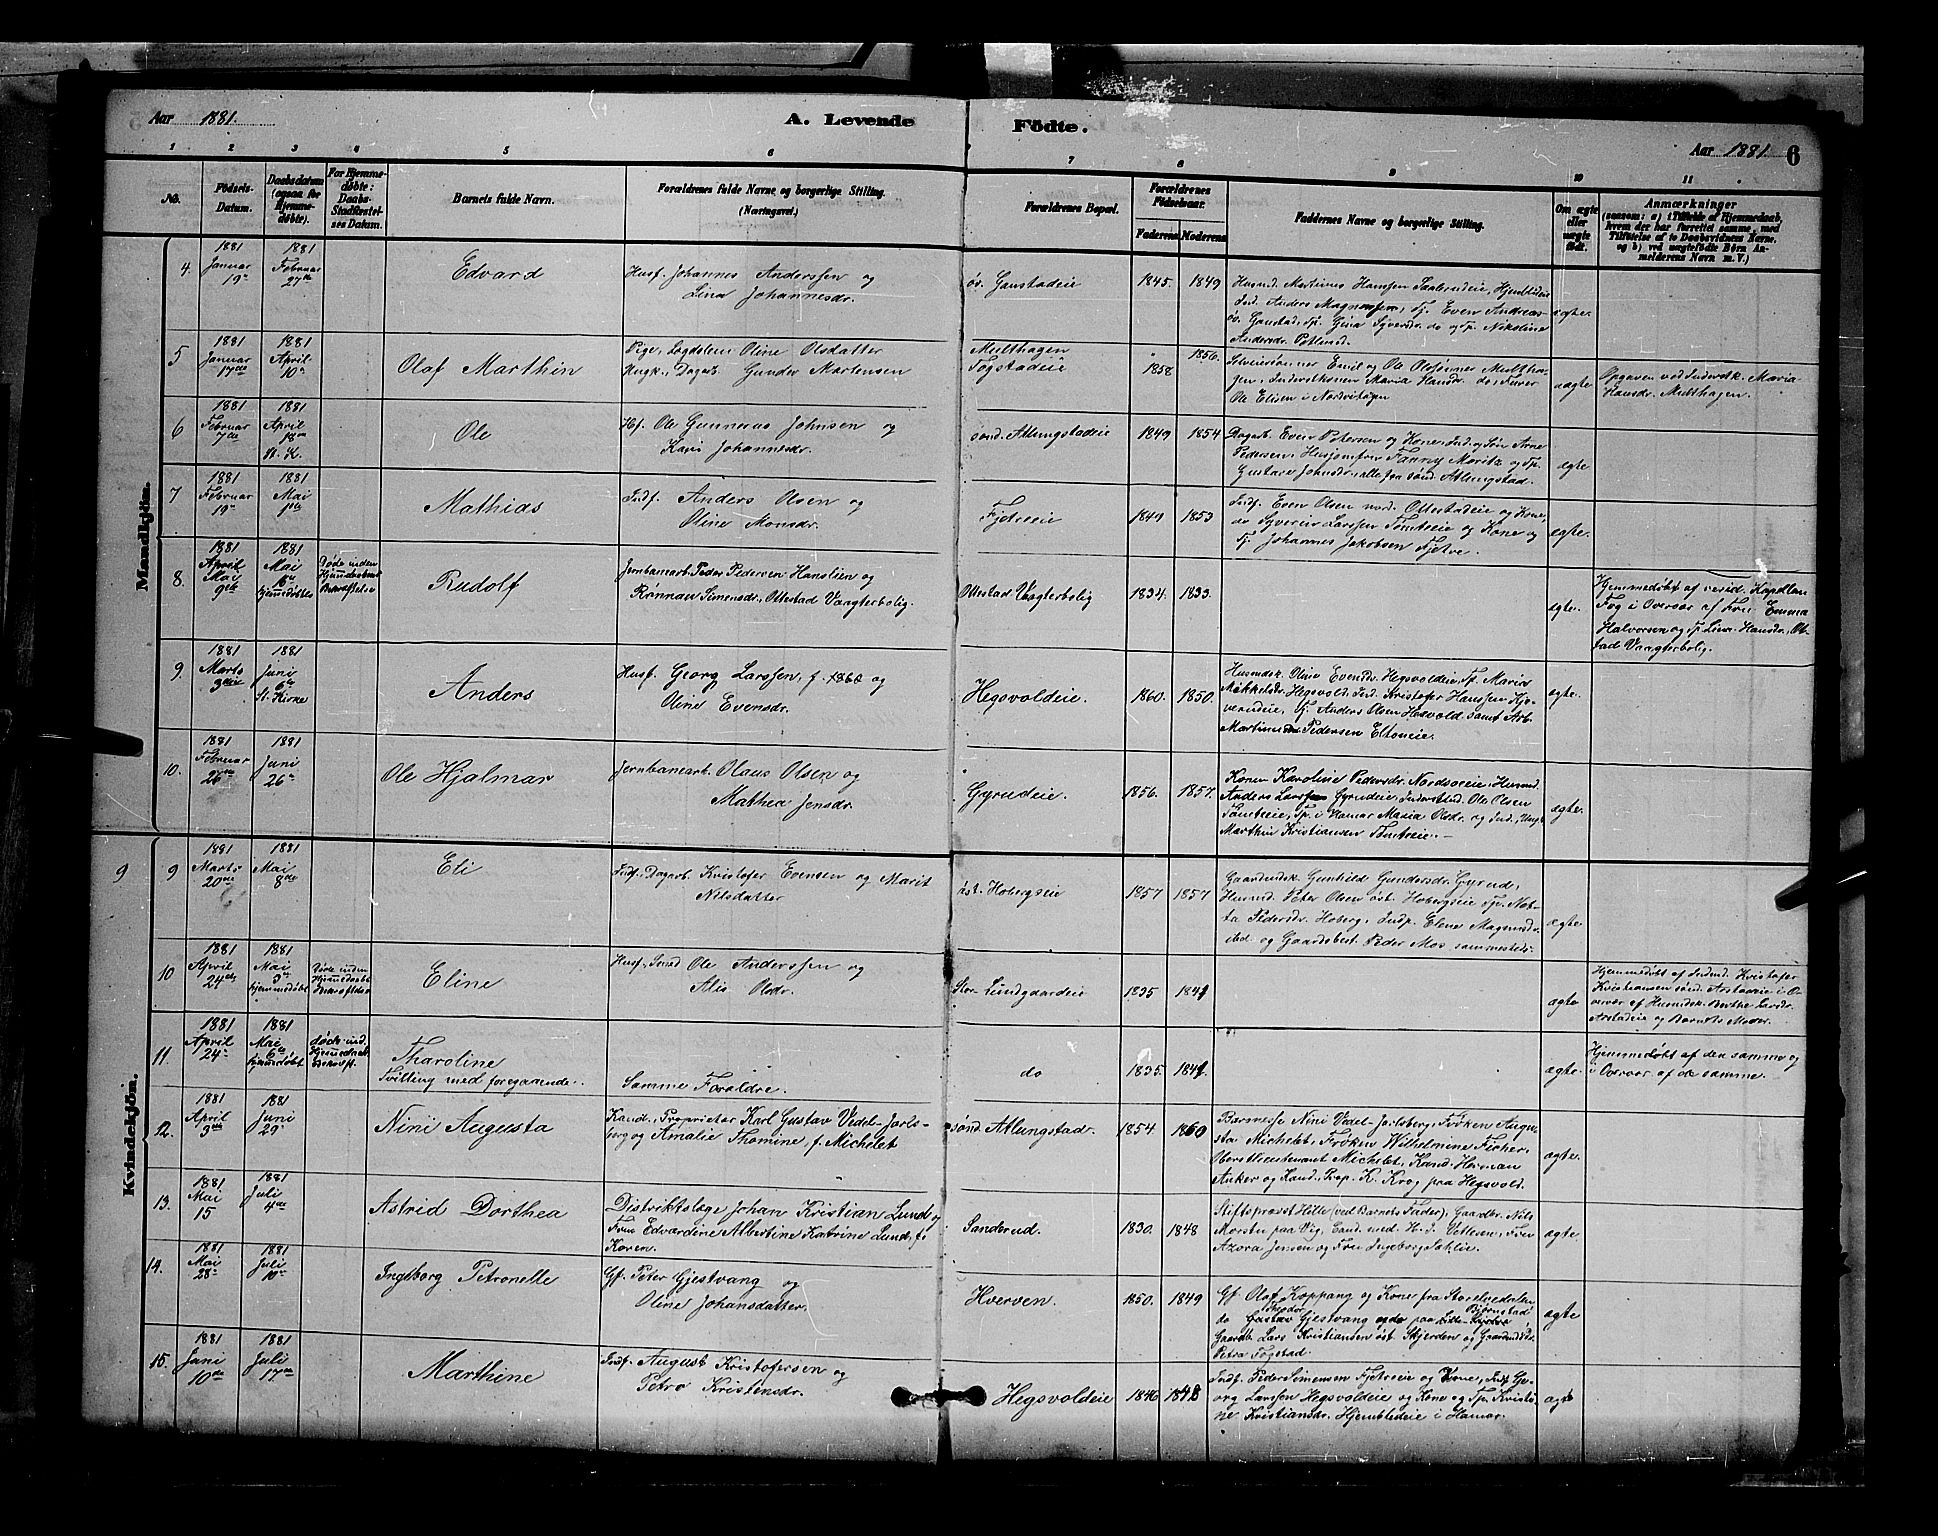 Aar 1881. A. Levende Födte. Aar 1881 6
1 2 3 4 5 6 7 8 9 10 11
No.
Födsels-
Datum.
Daabsdatum
(ogsaa for
Hjemme-
döbte).
For Hjemme-
døbte:
Daabs-
Stadfæstel-
ses Datum.
Barnets fulde Navn.
Forældrenes fulde Navne og borgerlige Stilling.
(Næringsvei.)
Forældrenes Bopæl.
Forældrenes
Födselsaar.
Faderens Moderens
Faddernes Navne og borgerlige Stilling.
Om ægte
eller
uægte
födt.
Anmærkninger
(saasom: a) i Tilfælde af Hjemmedaab,
hvem der har forrettet samme, med
Tilföielse af to Daabsvidners Navne.
og b) ved uægtefödte Börn An-
melderens Navn m. V.)
Mandkjön.
4
1881
Januar
19
1881
Februar
27de
Edvard
Husf. Johannes Anderssen og
Lina Johannesdr.
øv. Gaustadeie
1845. 1849
Husmd. Martinus Hanssen Saalerudeie, Hjemstideie
Ind. Anders Magnussen, Tj. Even Andreas-
øv. Gaustad, Tp. Gina Syversdr. do og Tp. Nikoline
Andersdr.
ægte.
5
1881
Januar
17de
1881
April
10
Olaf Marthin
Pige, Logdslem Oline Olsdatter
Ungk., Dagarb. Gunder Mortensen
Multhagen
Togstadeie
1858 1856.
Selveiersønner Emil og Ole Olsønner Multha-
gen, Inderstkonen Maria Hansdr. do, Furer
Ole Elisen i Nordvihagen
uægte
Opgaven ved Inderstk. Maria
Hansdr. Multhagen.
6
1881
Februar
7de
1881
April
18
St. K.
Ole
Hf. Ole Gunnerus Johnsen og
Karis Johannesdr.
sønd. Atlungstadeie
1849 1854
Dagarb. Even Petersen og Kone, Ind. og Søn Arne
Pedersen, Husjomfru Fanny Moritz og Tp.
Gustava Johnsdr., alle fra sønd. Atlungstad.
ægte
7
1881
Februar
19
1881
Mai
1ste
Mathias
Indf. Anders Olsen og
Oline Monsdr.
Fjetreeie
1849 1853
Indf. Even Olsen nord. Ottestadeie og Kone,
do Syverin Larssen Tomtreie og Kone og
Tj. Johannes Jakobsen Fjetre.
ægte.
8.
1881
April
Mai
9de
1881
Mai
16
hjemmedøbtes
Døde inden
Hjemmedaabens
Bekræftelse
Rudolf
Jernbanearb. Peder Pedersen Hanslien og
Rønnau Simensdr., Ottestad Vaagterbolig.
Ottestad Vaagterbolig
1834. 1833.
ægte.
Hjemmedøbt af resid. Kapellan
Fog i Overvær af Fru Emma
Halvorsen og Tp. Lina Hansdr., Ot-
tstad Vaagterbolig.
9.
1881
Marts
3die
1881
Juni
6te
St. Kirke
Anders
Husf. Georg Larssen, f. 1860 og
Oline Evensdr.
Hegsvoldeie.
1860. 1850.
Husmdsk. Olina Evensdr. Hegsvoldeie, Tp. Maria
Mikkelsdr. Hegsvold, Ind. Kristofer Hanssen Kjo-
verudeie, Tj. Anders Olsen Hosvold samt Arb.
Martinus Pedersen Eltoneie.
ægte.
10.
1881
Februar
26
1881
Juni
26
Ole Hjalmar
Jernbanearb. Olaus Olsen og
Mathea Jensdr.
Gyrudeie.
1856. 1857.
Konen Karoline Pedersdr. Nordsoeeie, Husmd.
Anders Larssen Gyrudeie, Inderst Ind. Ole Olsen
Tomtreie, Tp. i Hamar Maria Olsdr. og Ind., Ungk.
Marthin Kristiansen Tomtreie.
ægte.
Kvindekjön.
9
9
1881
Marts
20
1881
Mai
8de
Eli
Indf. Dagarb. Kristofer Evensen og Marit
Nilsdatter
øst. Hobergseie
1857 1857
Gaardmdsk. Gunhild Gundersdr. Gyrud,
Husmd. Peter Olsen øst. Hobergseie, Tp. Net-
ta Pedersdr. Hoberg, Indp. Elene Magnusdr.
ibd. og Gaardsbest. Peder Moe sammesteds.
ægte
10
1881
April
24de
1881
Mai
3
hjemmedøbt
Døde inden
Hjemmedaabs
Bekræftelse
Eline
Husf. Smed Ole Anderssen og
Alis Olsdr.
Stor Lundgaardeie
1835 1841
ægte
Hjemmedøbt af Indmd. Kristofer
Kristiansen sønd. Arstadeie i O-
vervær af Husmdsk. Berthe Larsdr.
Arstadeie og Barnets Moder.
11
1881
April
24
1881
Mai
6te
hjemmedøbt
døde ind.
Hjemmedaab.
Bekræft.
Tharoline
Tvilling med foregaaende.
Samme Forældre.
do
1835. 1841.
ægte.
Hjemmedøbt af den samme og
i Overvær af de samme.
12.
1881
April
3
1881
Juni
29
Nini Augusta
Kand., Proprietær Karl Gustav Vedel-Jarls-
berg og Amalie Thomine, f. Michelet
sønd. Atlungstad.
1854 1860
Baronesse Nini Vedel-Jarlsberg, Frøken Augu-
sta Michelet, Frøken Wilhelmine Fisher,
Oberstlieutenant Michelet, Kand. Herman
Anker og Kand. Prop. K. Krog paa Hegsvold.
ægte.
13.
1881
Mai
15
1881
Juli
4de
Astrid Dorthea
Distriktslæge Johan Kristian Lund og
Fru Edvardine Albertine Katrine Lund, f.
Koren.
Sanderud.
1830. 1848
Stiftsprovst Hille (ved Barnets Fader), Gaardbr. Nils
Morstu paa Vig, Cand. med. H. J. Vetlesen, Fru
Azora Jensen og Fru Ingeborg Sahlie.
ægte
14.
1881
Mai
28
1881
Juli
10
Ingeborg Petronelle
Gf. Peter Gjestvang og
Oline Johansdatter.
Hverven.
1850. 1849
Gf. Olaf Koppang og Kone fra Storelvedalen
Theodor Bjørnstad
do Gustav Gjestvang paa Lille
Gaardb. Lars Kristiansen øst. Skjerden og
Petra Fogstad.
ægte
15.
1881
Juni
10de
1881
Juli
17de
Marthine
Indf. August Kristofersen og
Petra Kristensdr.
Hegsvoldeie
1846 1848
Indf. Peder Simensen Fjetreeie og Kone, Indf. Ge-
org Larssen Hegsvoldeie og Kone og Tp. Kristi-
ne Kristiansdr. Hjembledeie i Hamar.
ægte